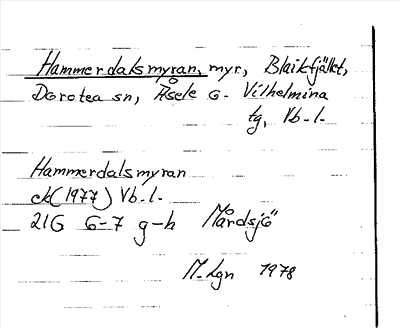 Hammerdalsmyran, myr, Blaikfjället,
Dorotea sn, Åsele o. Vilhelmina
tg, Vb.l.
Hammerdalsmyran
ek(1977) Vb.l.
21G 6-7 g-h Mårdsjö
M. Lgn 1978